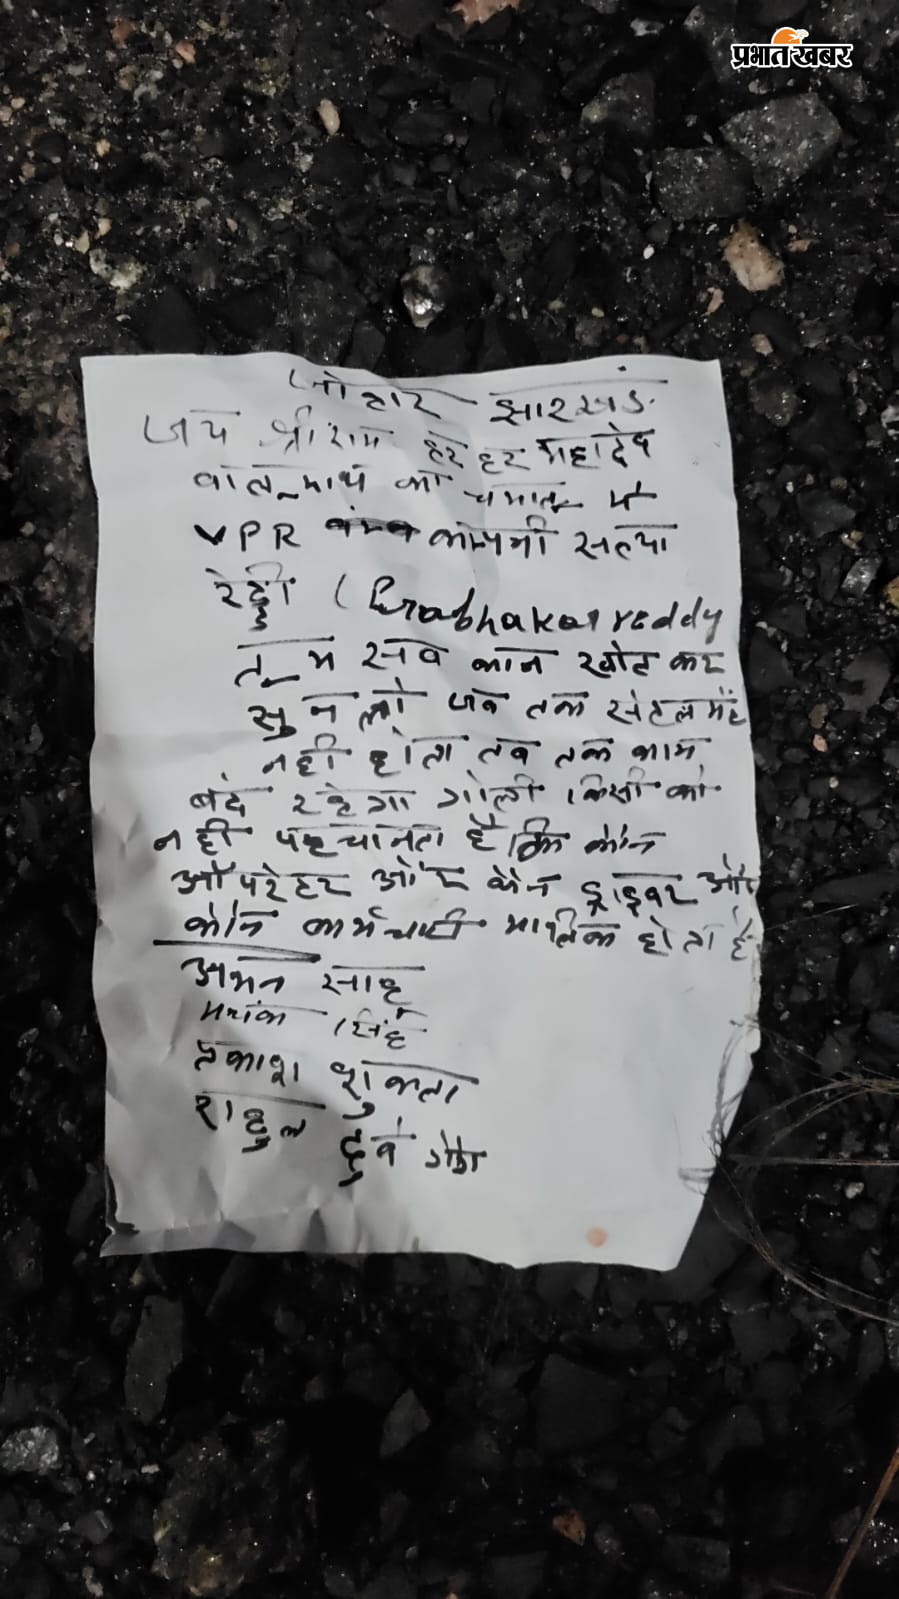 प्रभात खबर
जोहार झारखंड
जय श्री राम हर हर महादेव
का में
VPR कम्पनी सत्या
रेड्डी ( Prabhakar reddy
तुम सब कान खोल कर
सुन लो जब तक सेटलमेंट
नही होता तब तक काम
बंद रहेगा गोली किसी को
नही पहचानता है कि कोन
ऑपरेटर और कोन ड्राइवर और
कोन कर्मचारी मालिक होता है
अमन साहू
मयंक सिंह
प्रकाश शुक्ला
राहुल
दुबे